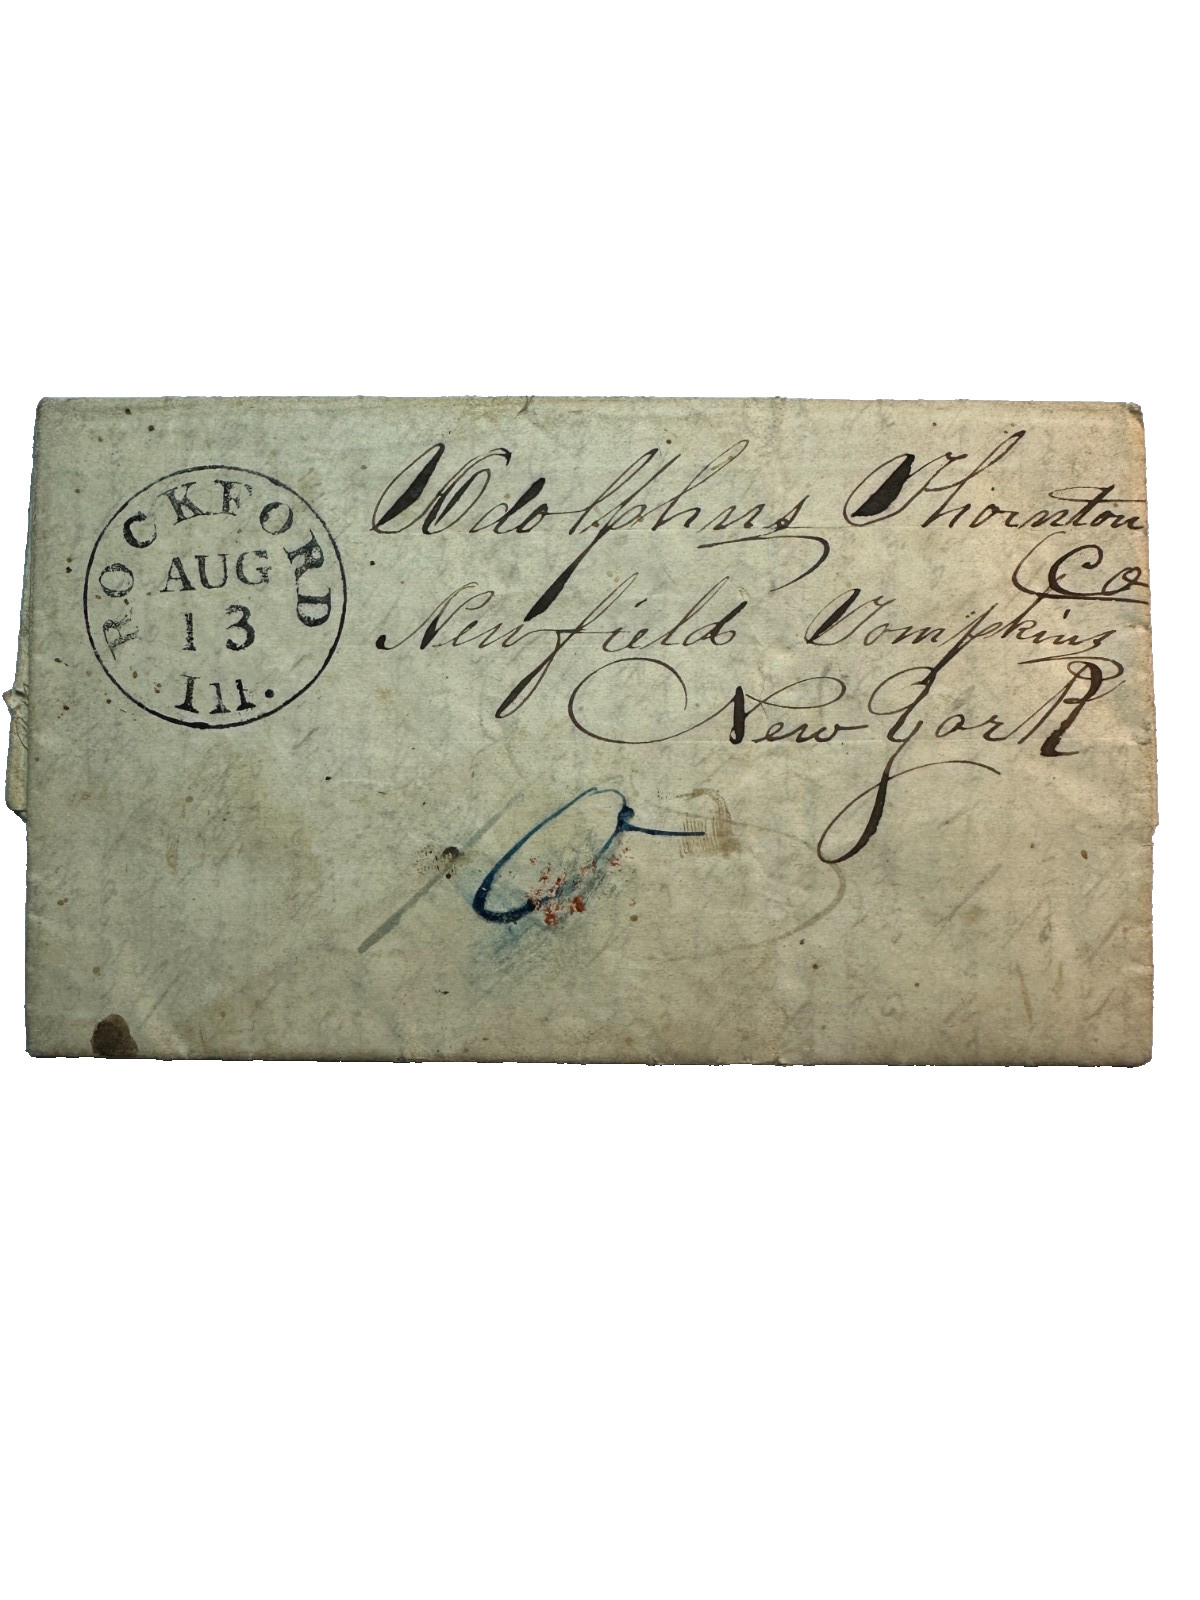 ROCKFORD
AUG
13
Ill.
Adolphus Thornton
Newfield Tompkins Co
New York
10